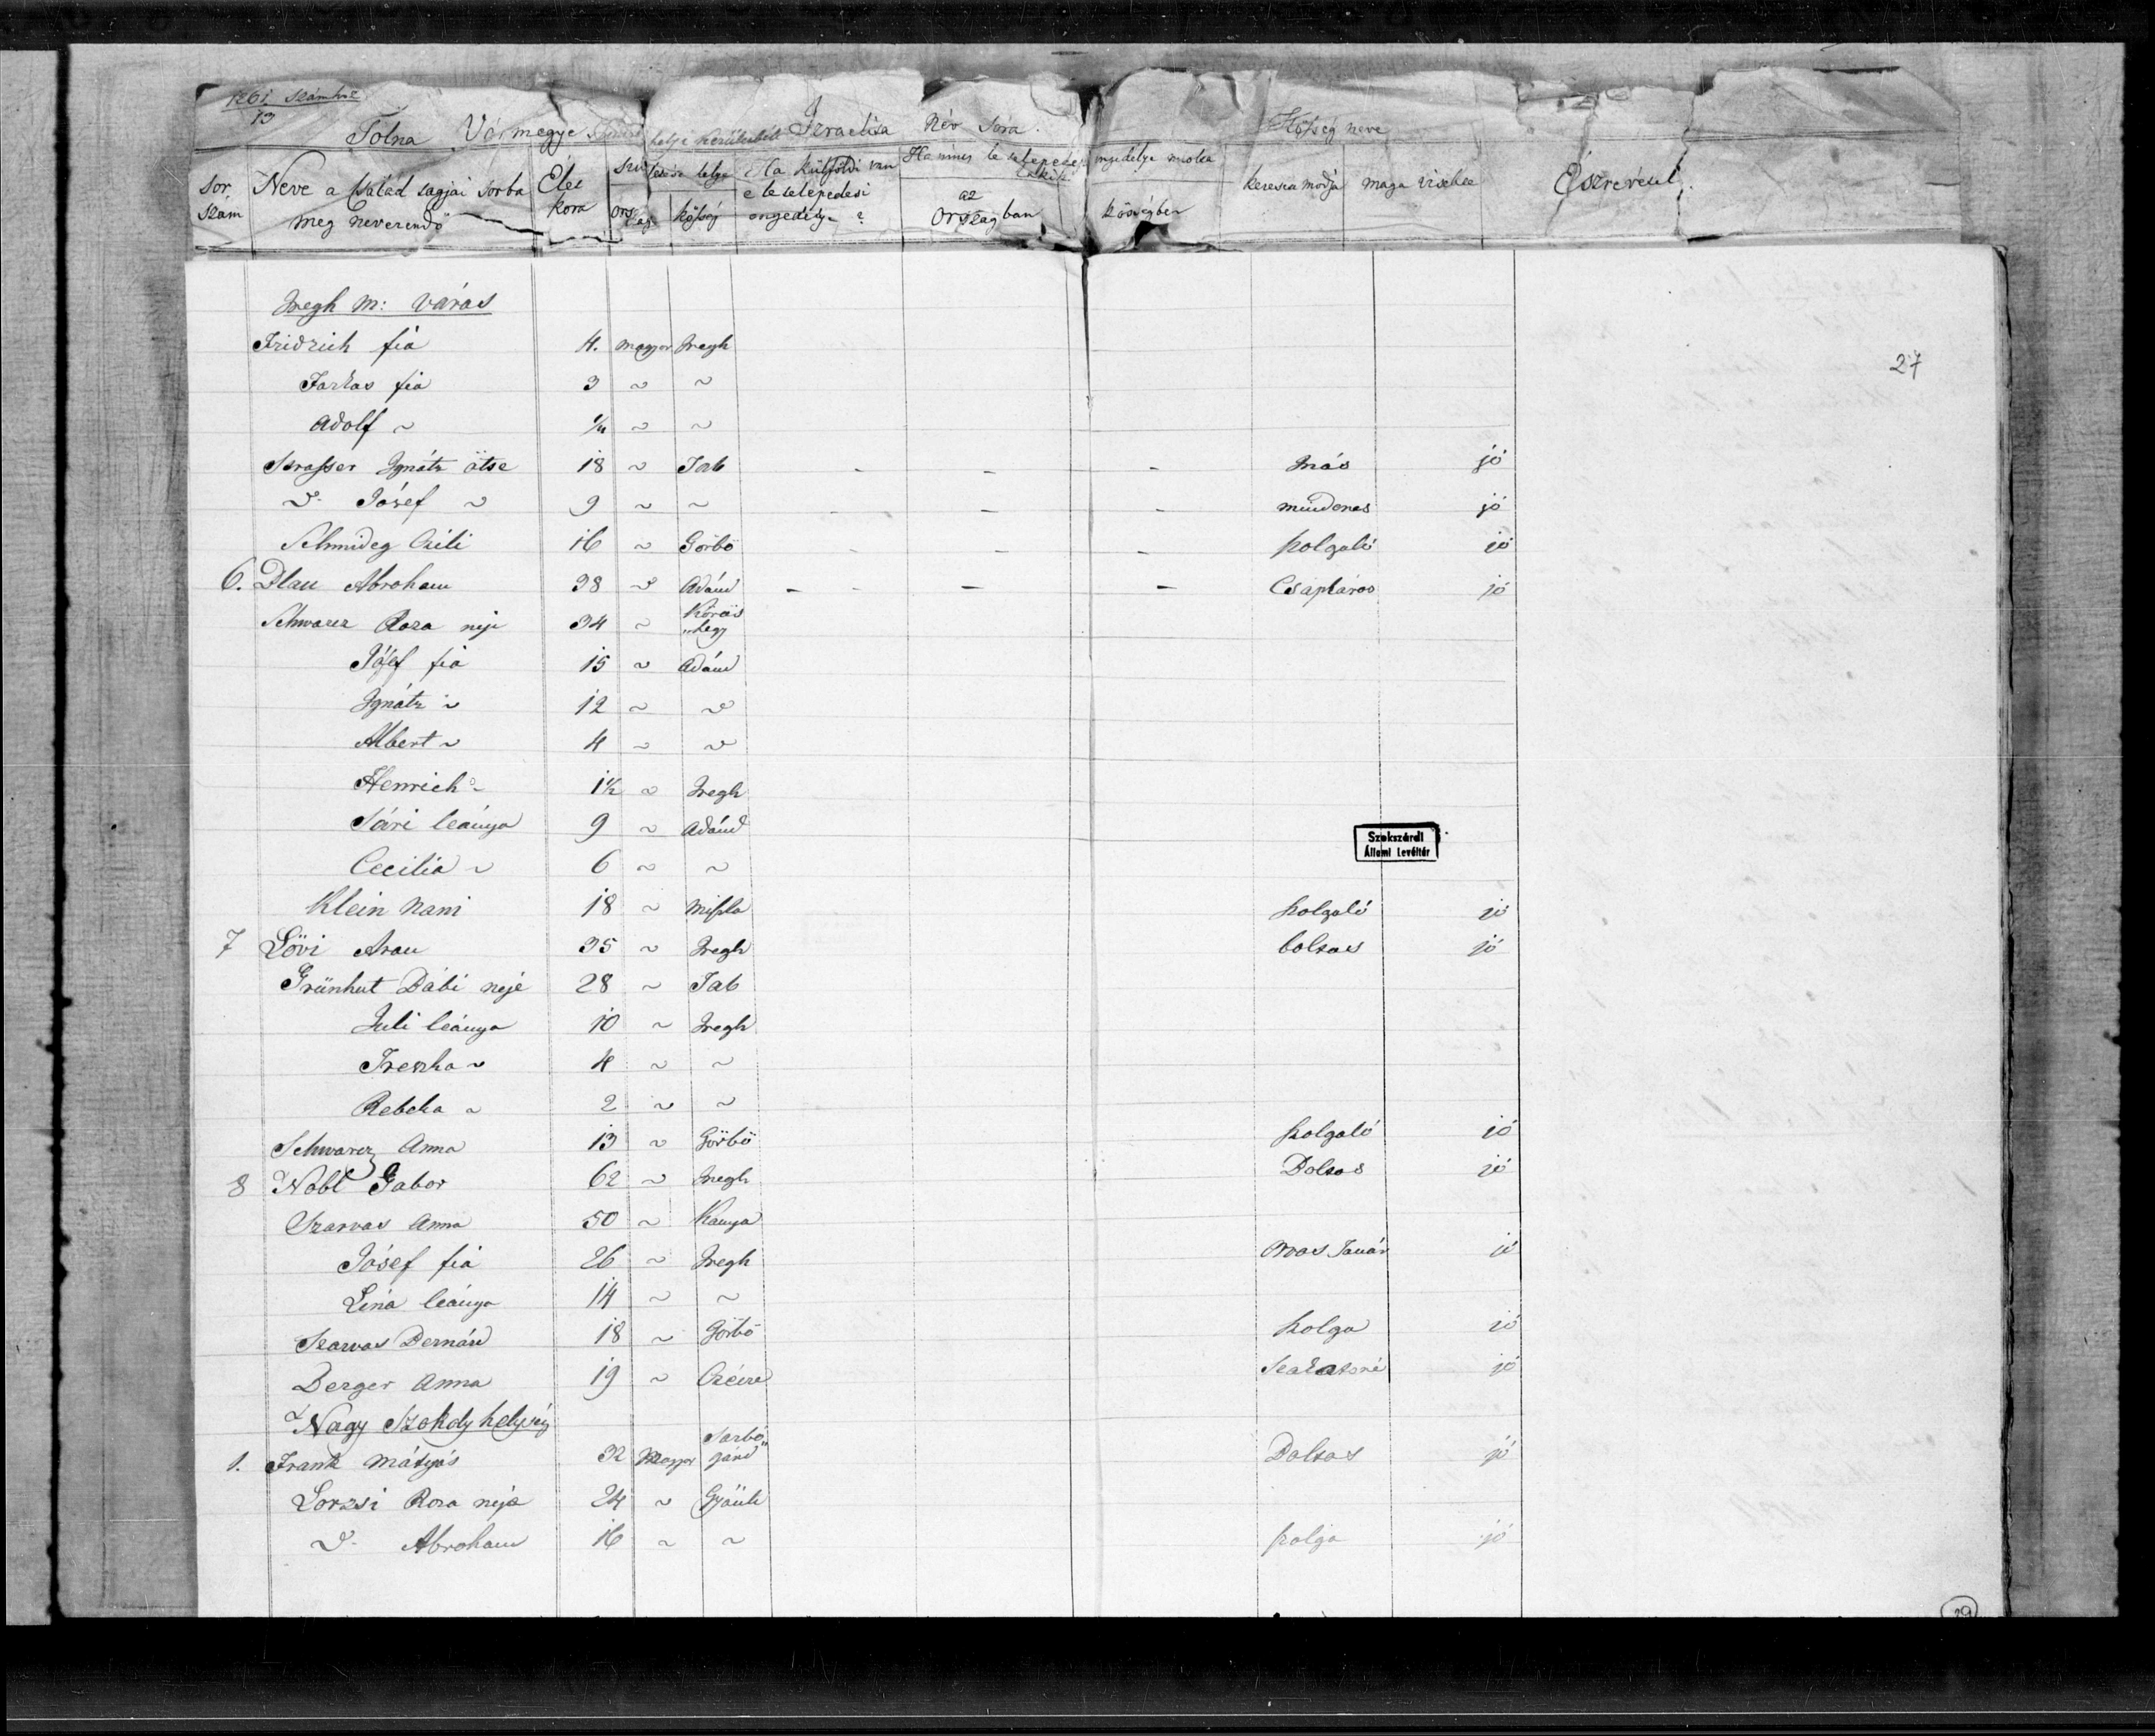 1261 számhoz
13
Tolna Vármegye helyi kerületbeli Izraelita Név Sora. Község neve
sor szám Neve a család tagjai sorba meg neverendő Élet kora Szü letése helye Ország község Ha külföldi van e letelepedesi engedélye? Ha nincs letelepedesi engedélye miolta lakik az Országban községben keresea modja maga viselete Észrevétel.
Iregh m: város
Fridrich fia 4. magyar Iregh
27
Farkas fia 3 ~ ~
Adolf ~ 1/4 ~ ~
Strasser Ignátz ötse 18 ~ Tab - - - más jó
~ Jósef ~ 9 ~ ~ - - - mindenes jó
Schmideg Czili 16 ~ Görbö - - - szolgaló jó
6. Blau Abroham 38 ~ Adánd - - - Csaplaros jó
Schwarcz Roza neje 34 ~ Körös „hegy
Jósef fia 15 ~ Adánd
Ignátz ~ 12 ~ ~
Albert ~ 4 ~ ~
Henrich ~ 1½ ~ Iregh
Sári leánya 9 ~ Adánd
Szekszárdi Állami Levéltár
Cecilia ~ 6 ~ ~
Klein Nani 18 ~ Miszla szolgaló jó
7 Lövi Aron 35 ~ Iregh boltos jó
Grünhut Bábi nejé 28 ~ Tab
Juli leánya 10 ~ Iregh
Treszka ~ 4 ~ ~
Rebeka ~ 2 ~ ~
Schwarcz Anna 13 ~ Görbö szolgaló jó
8 Nobl Gabor 62 ~ Iregh Boltos jó
Szarvas Anna 50 ~ Kanya
Jósef fia 26 ~ Iregh Orvos Tanár jó
Lina leánya 14 ~ ~
Szarvas Bernárd 18 ~ Görbö szolga jó
Berger Anna 19 ~ jó
Nagy Szokoly helység
1. Frank Mátyás 32 Magyar Sarbo„ gárd Boltos jó
Lorzsi Roza neje 24 ~ Gyönk
~ Abroham 16 ~ ~ szolga jó
29